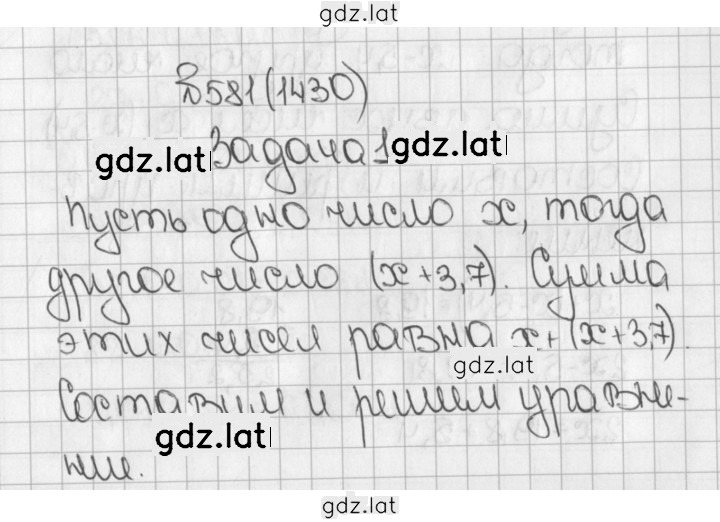 gdz.lat
№581(1430)
gdz.lat Задача 1 gdz.lat
Пусть одно число x, тогда
другое число (x+3,7). Сумма
этих чисел равна x+(x+3,7).
gdz.lat
Составим и решим уравне-
gdz.lat
ние.
gdz.lat